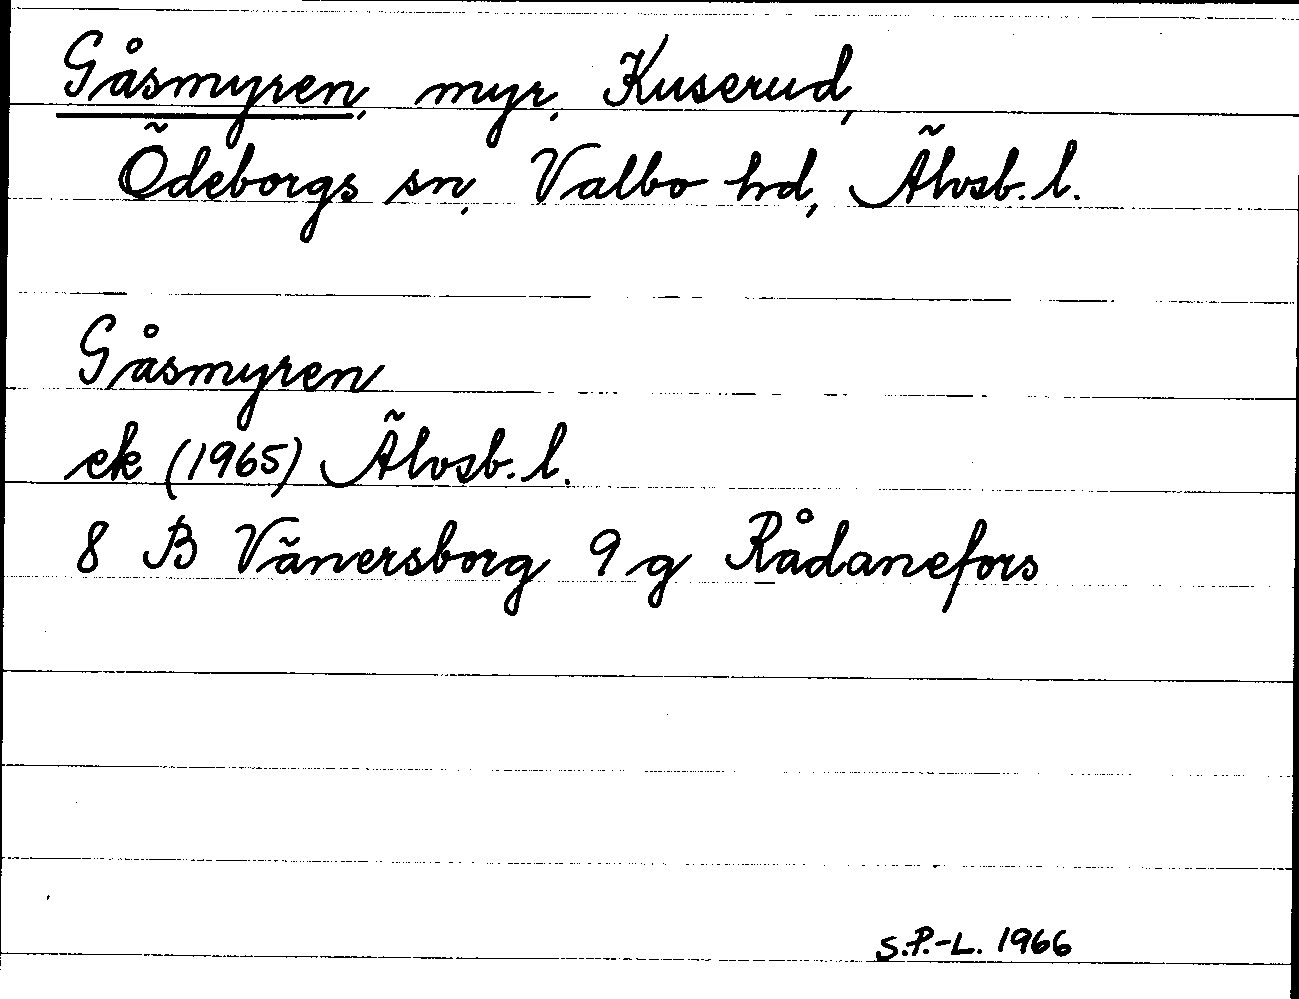 Gåsmyren, myr, Kuserud,
Ödeborgs sn, Valbo hd, Älvsb. l.
Gåsmyren
ek (1965) Älvsb. l.
8 B Vänersborg 9 g Rådanefors
S.P.-L. 1966